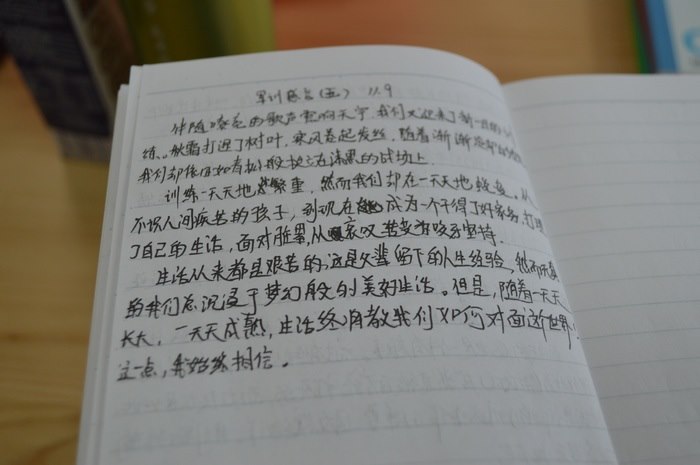 军训感言(五) 11.9
伴随嘹亮的歌声震响天宇,我们又迎来了新一日的训
练。秋霜打过了树叶,寒风卷起发丝,随着渐渐
我们却依旧如青松般挺立在漆黑的战场上
训练一天天地繁重,然而我们却在一天天地蜕变。从
不识人间疾苦的孩子,到现在成为一个干得了好家务,打理
了自己的生活,面对脏累,从哀叹叫苦变为咬牙坚持.
生活从来都是艰苦的,这是父辈留下的人生经验,然而
的我们总沉浸于梦幻般的美好生活。但是,随着一天天
长大,一天天成熟,生活终用教我们如何对面这世界!
这一点,我始终相信。